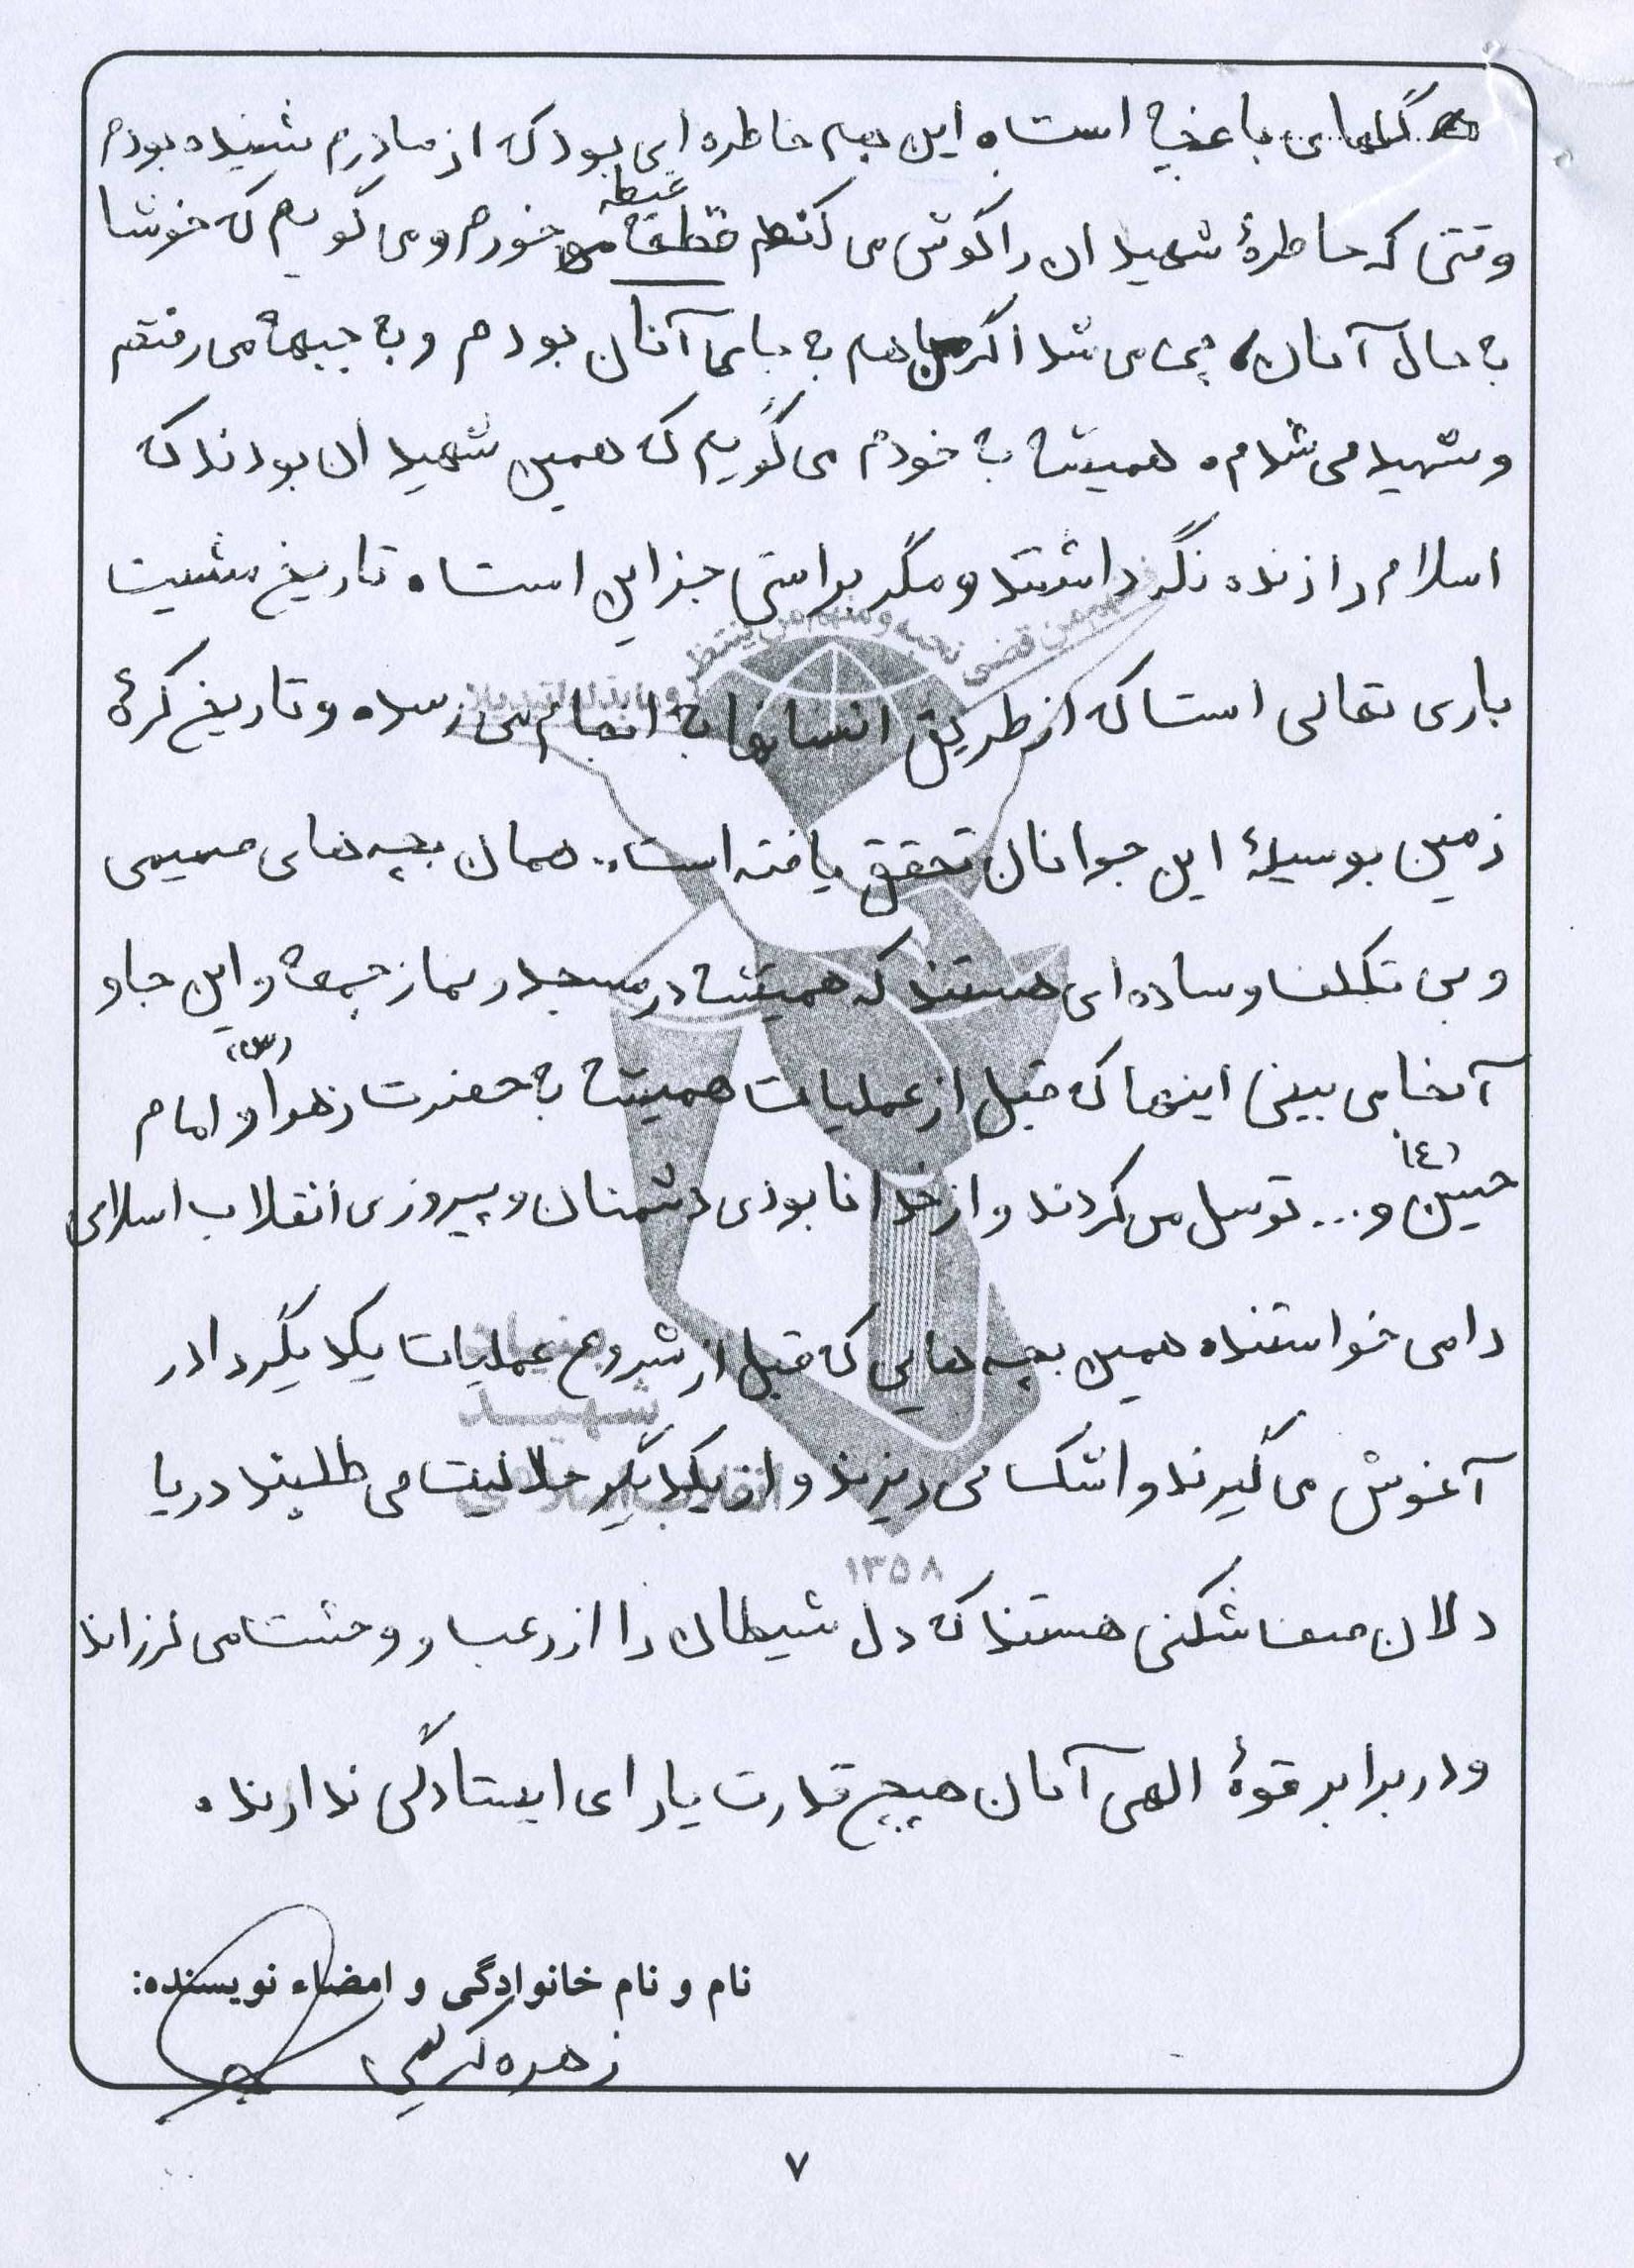 گلهای باغچه است. این هم خاطره ای بود که از مادرم شنیده بودم
وقتی که خاطرهٔ شهیدان را گوش می کنم غبطه می خورم و می گویم که خوشا
به حال آنان، چه می شد اگر من هم به جای آنان بودم و به جبهه می رفتم
و شهید می شدم. همیشه به خودم می گویم که همین شهیدان بودند که
اسلام را زنده نگه داشتند و مگر براستی جز این است. تاریخ مشیت
باری تعالی است که از طریق انسانها به انجام می رسد. و تاریخ کرهٔ
زمین بوسیلهٔ این جوانان تحقق یافته است. همان بچه های صمیمی
و بی تکلف و ساده ای هستند که همیشه در مسجد و نماز جمعه و این جا و
آنجا می بینی اینها که قبل از عملیات همیشه به حضرت زهرا (س) و امام
حسین (ع) و... توسل می کردند و از خدا نابودی دشمنان و پیروزی انقلاب اسلامی
را می خواستند. همین بچه هایی که قبل از شروع عملیات یکدیگر را در
آغوش می گیرند و اشک می ریزند و از یکدیگر حلالیت می طلبند دریا
دلان صف شکنی هستند که دل شیطان را از رعب و وحشت می لرزاند
و در برابر قوهٔ الهی آنان هیچ قدرت یارای ایستادگی ندارند.
من قضی نحبه و منهم من ینتظر و ما بدلوا تبدیلا
بنیاد
شهید
انقلاب اسلامی
۱۳۵۸
نام و نام خانوادگی و امضاء نویسنده:
زهره
۷